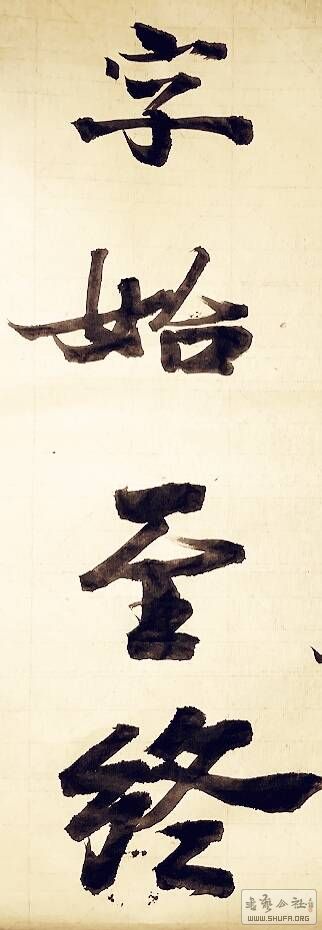 字
始
至
終
书艺公社
WWW.SHUFA.ORG